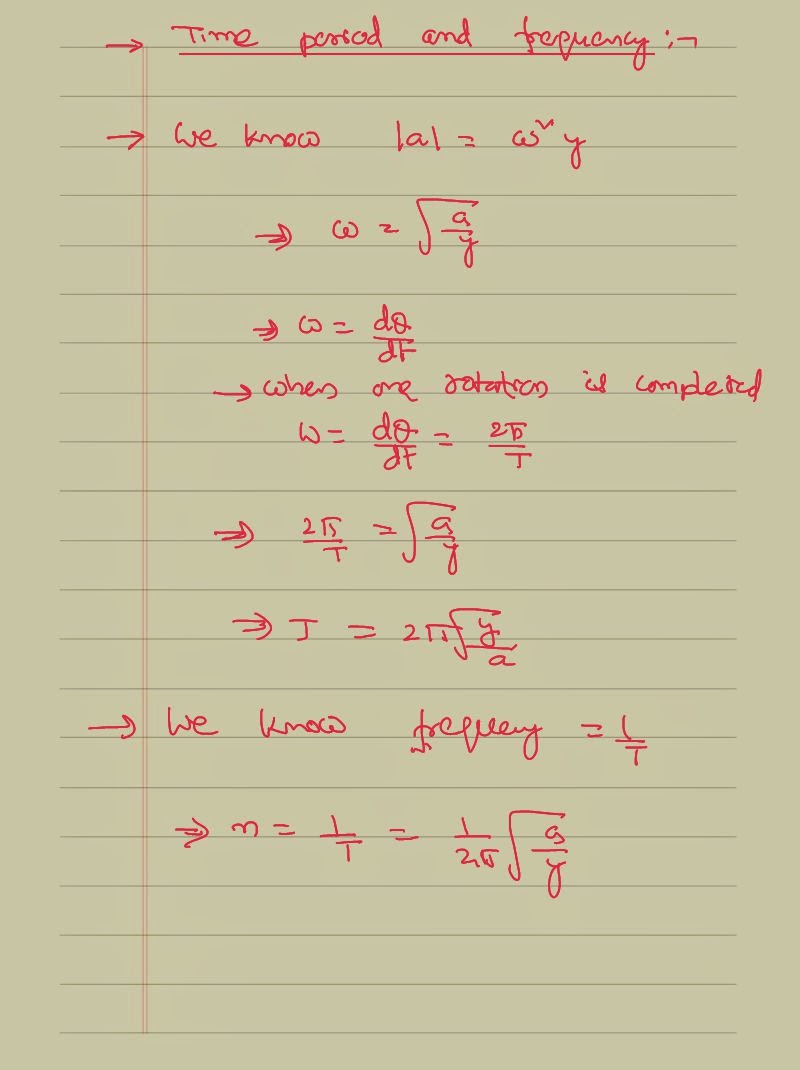 → Time period and frequency :-
→ We know |a| = ω² y
⇒ ω = √(a/y)
⇒ ω = dθ/dt
→ when one rotation is completed
ω = dθ/dt = 2π/T
⇒ 2π/T = √(a/y)
⇒ T = 2π√(y/a)
→ We know frequency = 1/T
⇒ n = 1/T = 1/2π √(a/y)